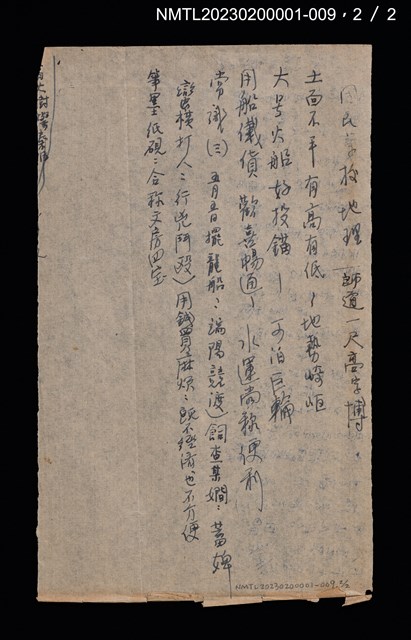 NMTL20230200001-009，2 / 2
國民學校地理 師道一尺高字博
土面不平有高有低–地勢崎岖
大号火船好投錨– 可泊巨輪
用船儎貨 歡喜暢通– 水運尚称便利
常識(三) 五月五日擺龍船：端陽競渡）飼查某嫺：蓄婢
蠻橫打人：行兇鬥毆）用錢買麻煩：既不經濟也不方便
筆墨紙硯：合称文房四宝
NMTL20230200001-009 2/2